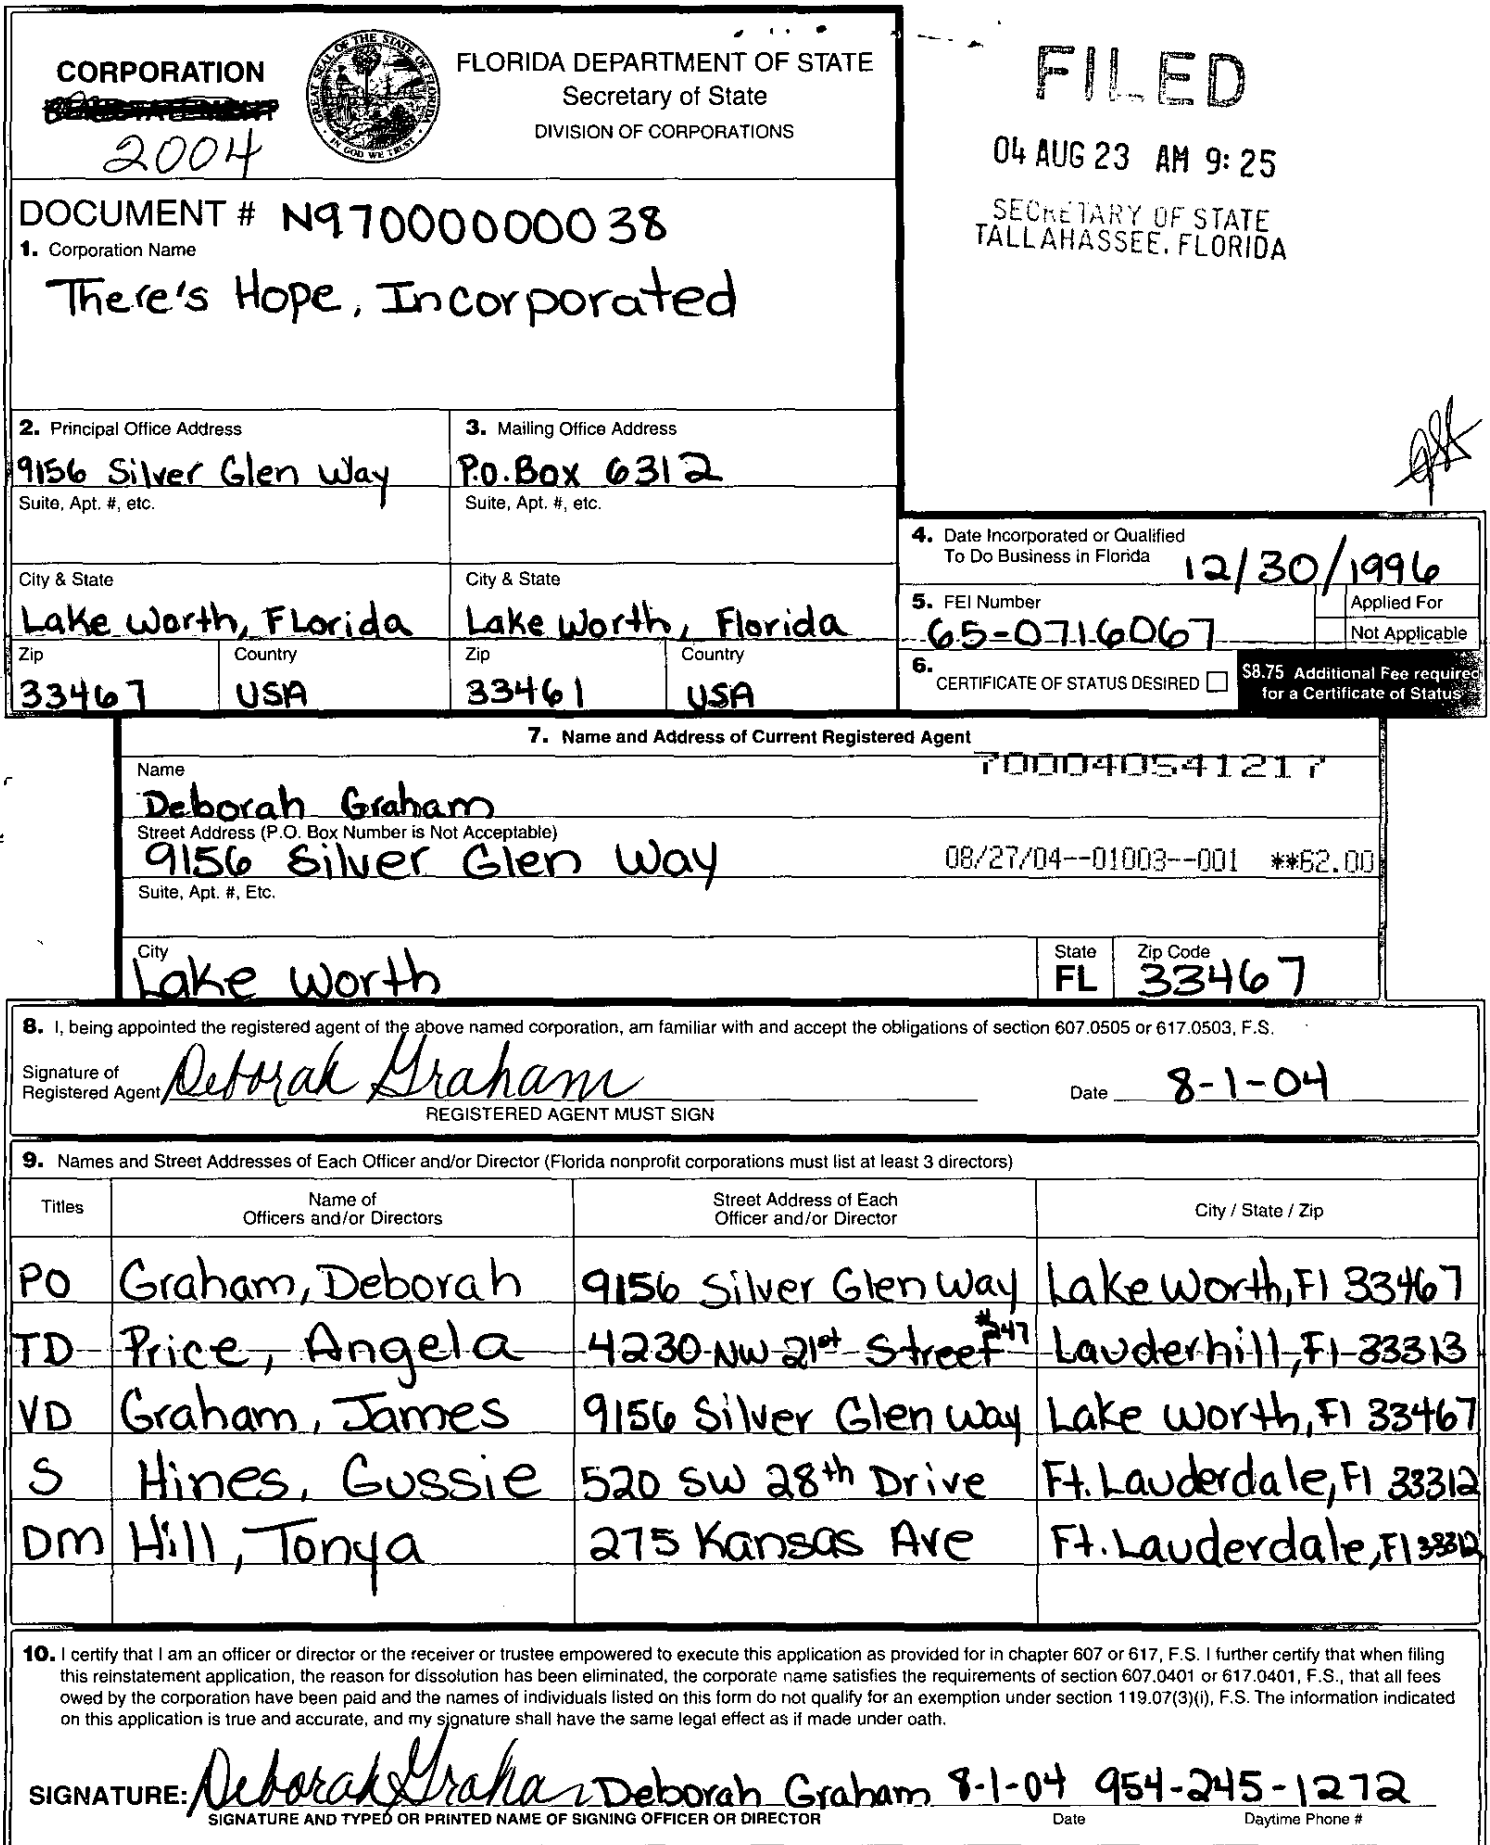 CORPORATION
2004
GREAT SEAL OF THE STATE OF FLORIDA
IN GOD WE TRUST
FLORIDA DEPARTMENT OF STATE
Secretary of State
DIVISION OF CORPORATIONS
FILED
04 AUG 23 AM 9:25
SECRETARY OF STATE
TALLAHASSEE, FLORIDA
DOCUMENT # N97000000038
1. Corporation Name
There's Hope, Incorporated
2. Principal Office Address
9156 Silver Glen Way
Suite, Apt. #, etc.
City & State
Lake Worth, Florida
Zip Country
33467 USA
3. Mailing Office Address
P.O. Box 6312
Suite, Apt. #, etc.
City & State
Lake Worth, Florida
Zip Country
33461 USA
4. Date Incorporated or Qualified
To Do Business in Florida 12/30/1996
5. FEI Number
65-0716067
Applied For
Not Applicable
6. CERTIFICATE OF STATUS DESIRED
$8.75 Additional Fee required
for a Certificate of Status
7. Name and Address of Current Registered Agent
700040541217
Name
Deborah Graham
Street Address (P.O. Box Number is Not Acceptable)
9156 Silver Glen Way
08/27/04--01003--001 **62.00
Suite, Apt. #, Etc.
City
Lake Worth
State
FL
Zip Code
33467
8. I, being appointed the registered agent of the above named corporation, am familiar with and accept the obligations of section 607.0505 or 617.0503, F.S.
Signature of
Registered Agent Deborah Graham Date 8-1-04
REGISTERED AGENT MUST SIGN
9. Names and Street Addresses of Each Officer and/or Director (Florida nonprofit corporations must list at least 3 directors)
Titles Name of Officers and/or Directors Street Address of Each Officer and/or Director City / State / Zip
PO Graham, Deborah 9156 Silver Glen Way Lake Worth, Fl 33467
TD Price, Angela 4230 NW 21st Street #247 Lauderhill, Fl 33313
VD Graham, James 9156 Silver Glen Way Lake Worth, Fl 33467
S Hines, Gussie 520 SW 28th Drive Ft. Lauderdale, Fl 33312
DM Hill, Tonya 275 Kansas Ave Ft. Lauderdale, Fl 33312
10. I certify that I am an officer or director or the receiver or trustee empowered to execute this application as provided for in chapter 607 or 617, F.S. I further certify that when filing
this reinstatement application, the reason for dissolution has been eliminated, the corporate name satisfies the requirements of section 607.0401 or 617.0401, F.S., that all fees
owed by the corporation have been paid and the names of individuals listed on this form do not qualify for an exemption under section 119.07(3)(i), F.S. The information indicated
on this application is true and accurate, and my signature shall have the same legal effect as if made under oath.
SIGNATURE: Deborah Graham Deborah Graham 8-1-04 954-245-1272
SIGNATURE AND TYPED OR PRINTED NAME OF SIGNING OFFICER OR DIRECTOR Date Daytime Phone #